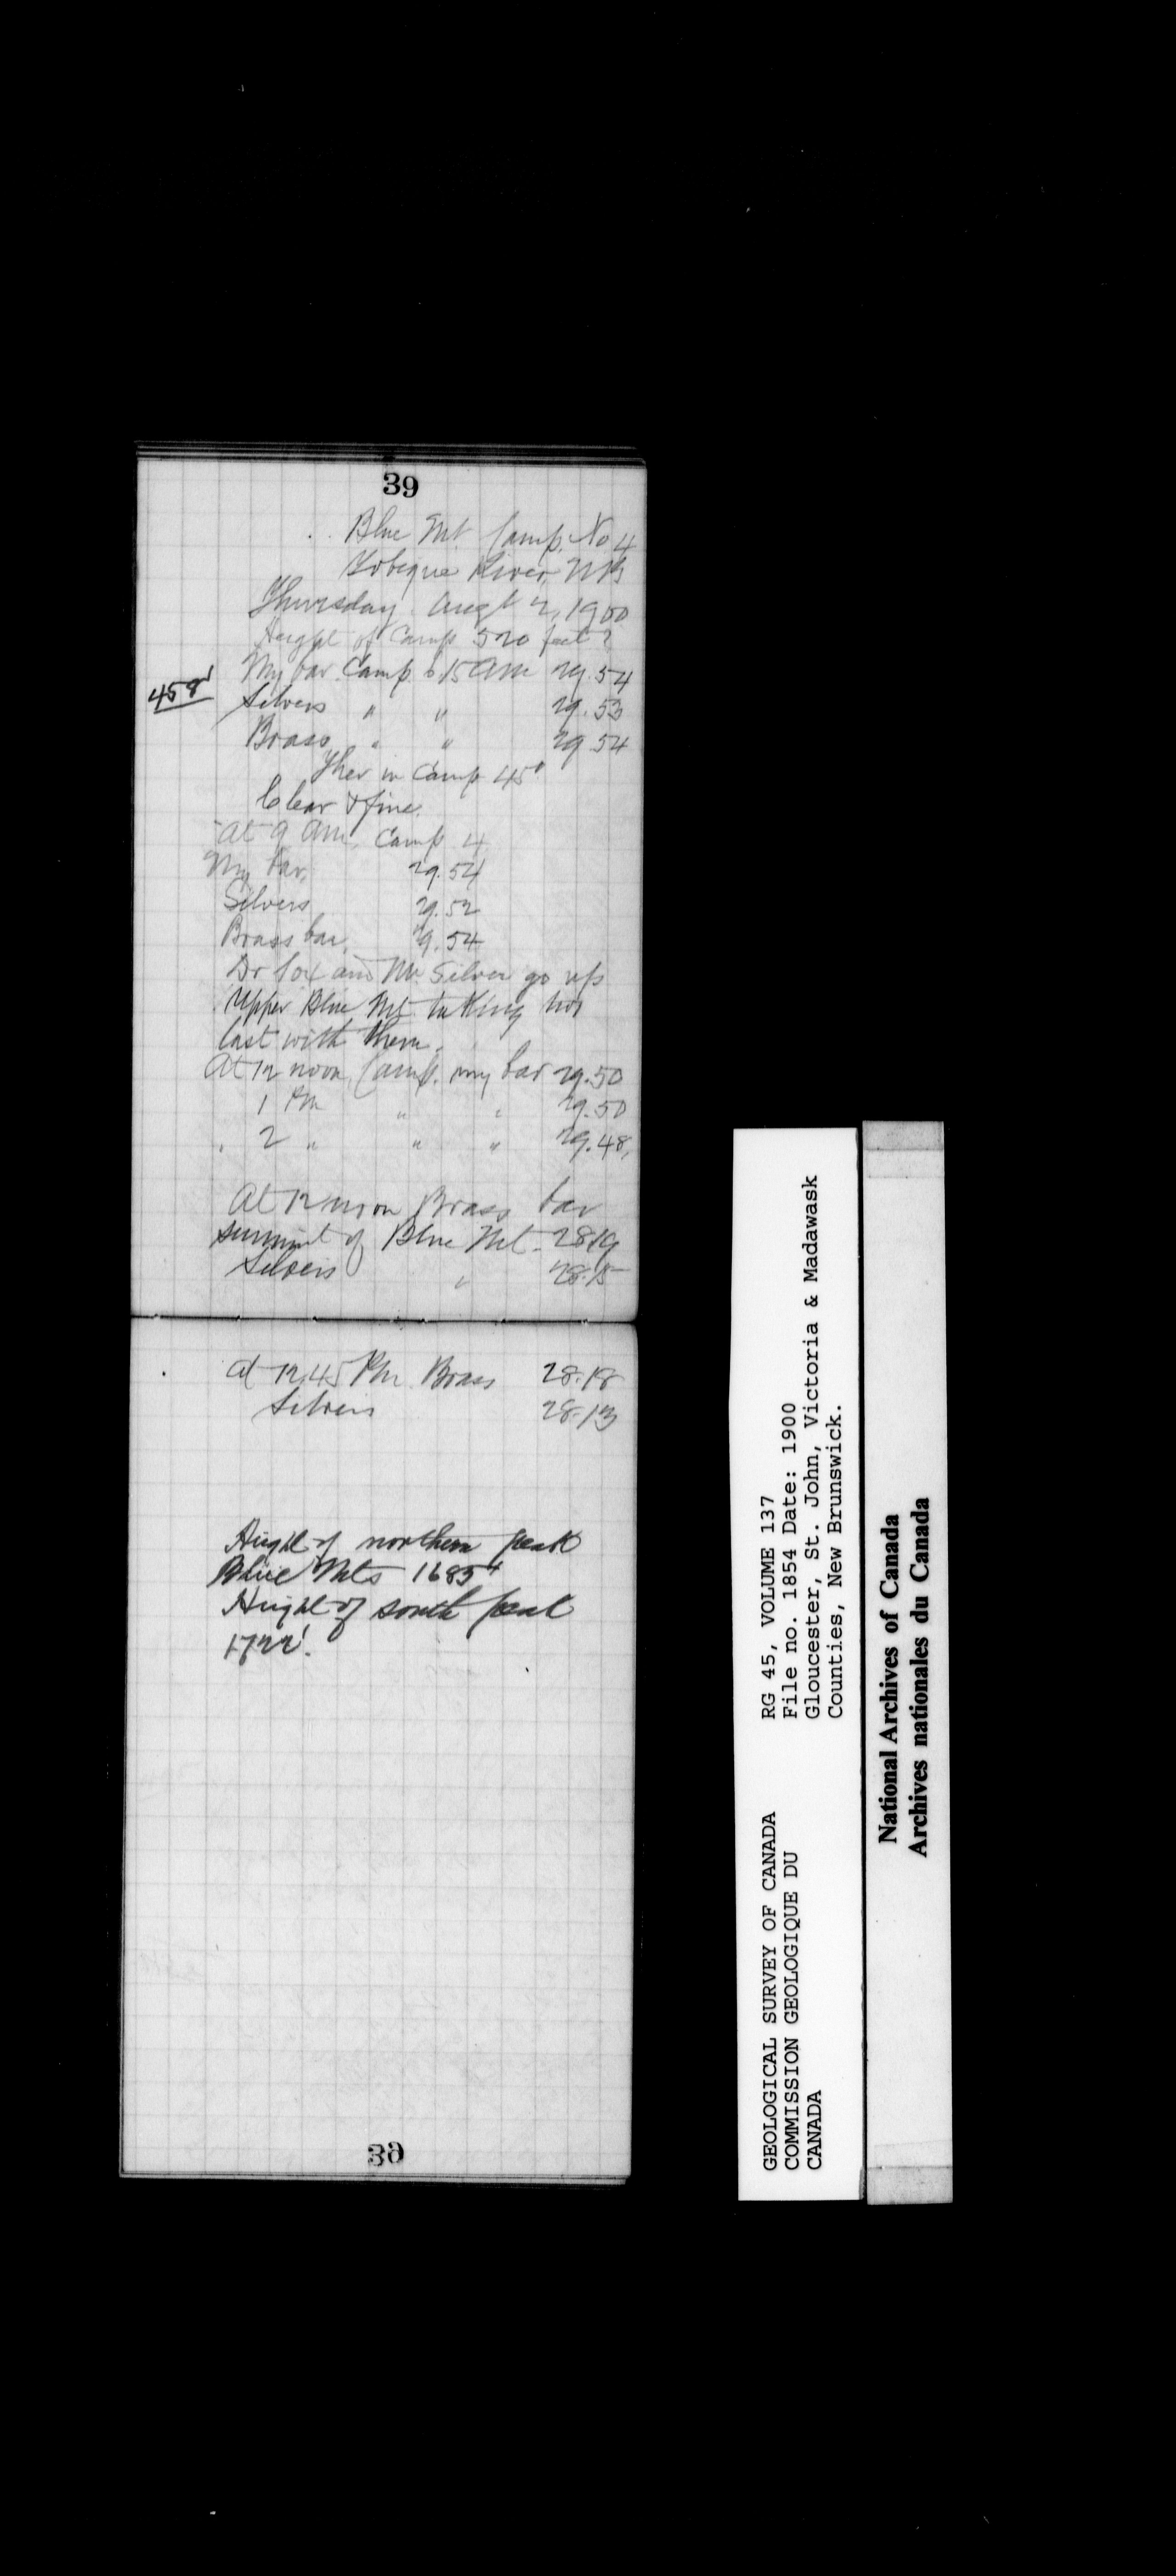 39
Blue Mt. Camp. No 4
Tobique River, NB
Thursday. Augt 2, 1900
Height of Camp 520 feet?
My bar. Camp. 6 15 am 29.54
458'
Silvers " " 29.53
Brass " " 29.54
Ther in Camp 45°
Clear & fine.
At 9 am, Camp 4
My bar, 29.54
Silvers 29.52
Brass bar, 29.54
Dr Cox and Mr. Silver go up
Upper Blue Mt taking two
last with them.
At 12 noon, Camp. my bar 29.50
1 Pm " " 29.50
2 " " " 29.48,
At 12 noon Brass bar
summit of Blue Mt. 28.19
Silvers " 28.15
At 12.45 Pm Brass 28.18
Silvers 28.13
Height of northern peak
Blue Mts 1685
Height of south peak
1722'.
39
GEOLOGICAL SURVEY OF CANADA RG 45, VOLUME 137
COMMISSION GEOLOGIQUE DU File no. 1854 Date: 1900
CANADA Gloucester, St. John, Victoria & Madawask
Counties, New Brunswick.
National Archives of Canada
Archives nationales du Canada